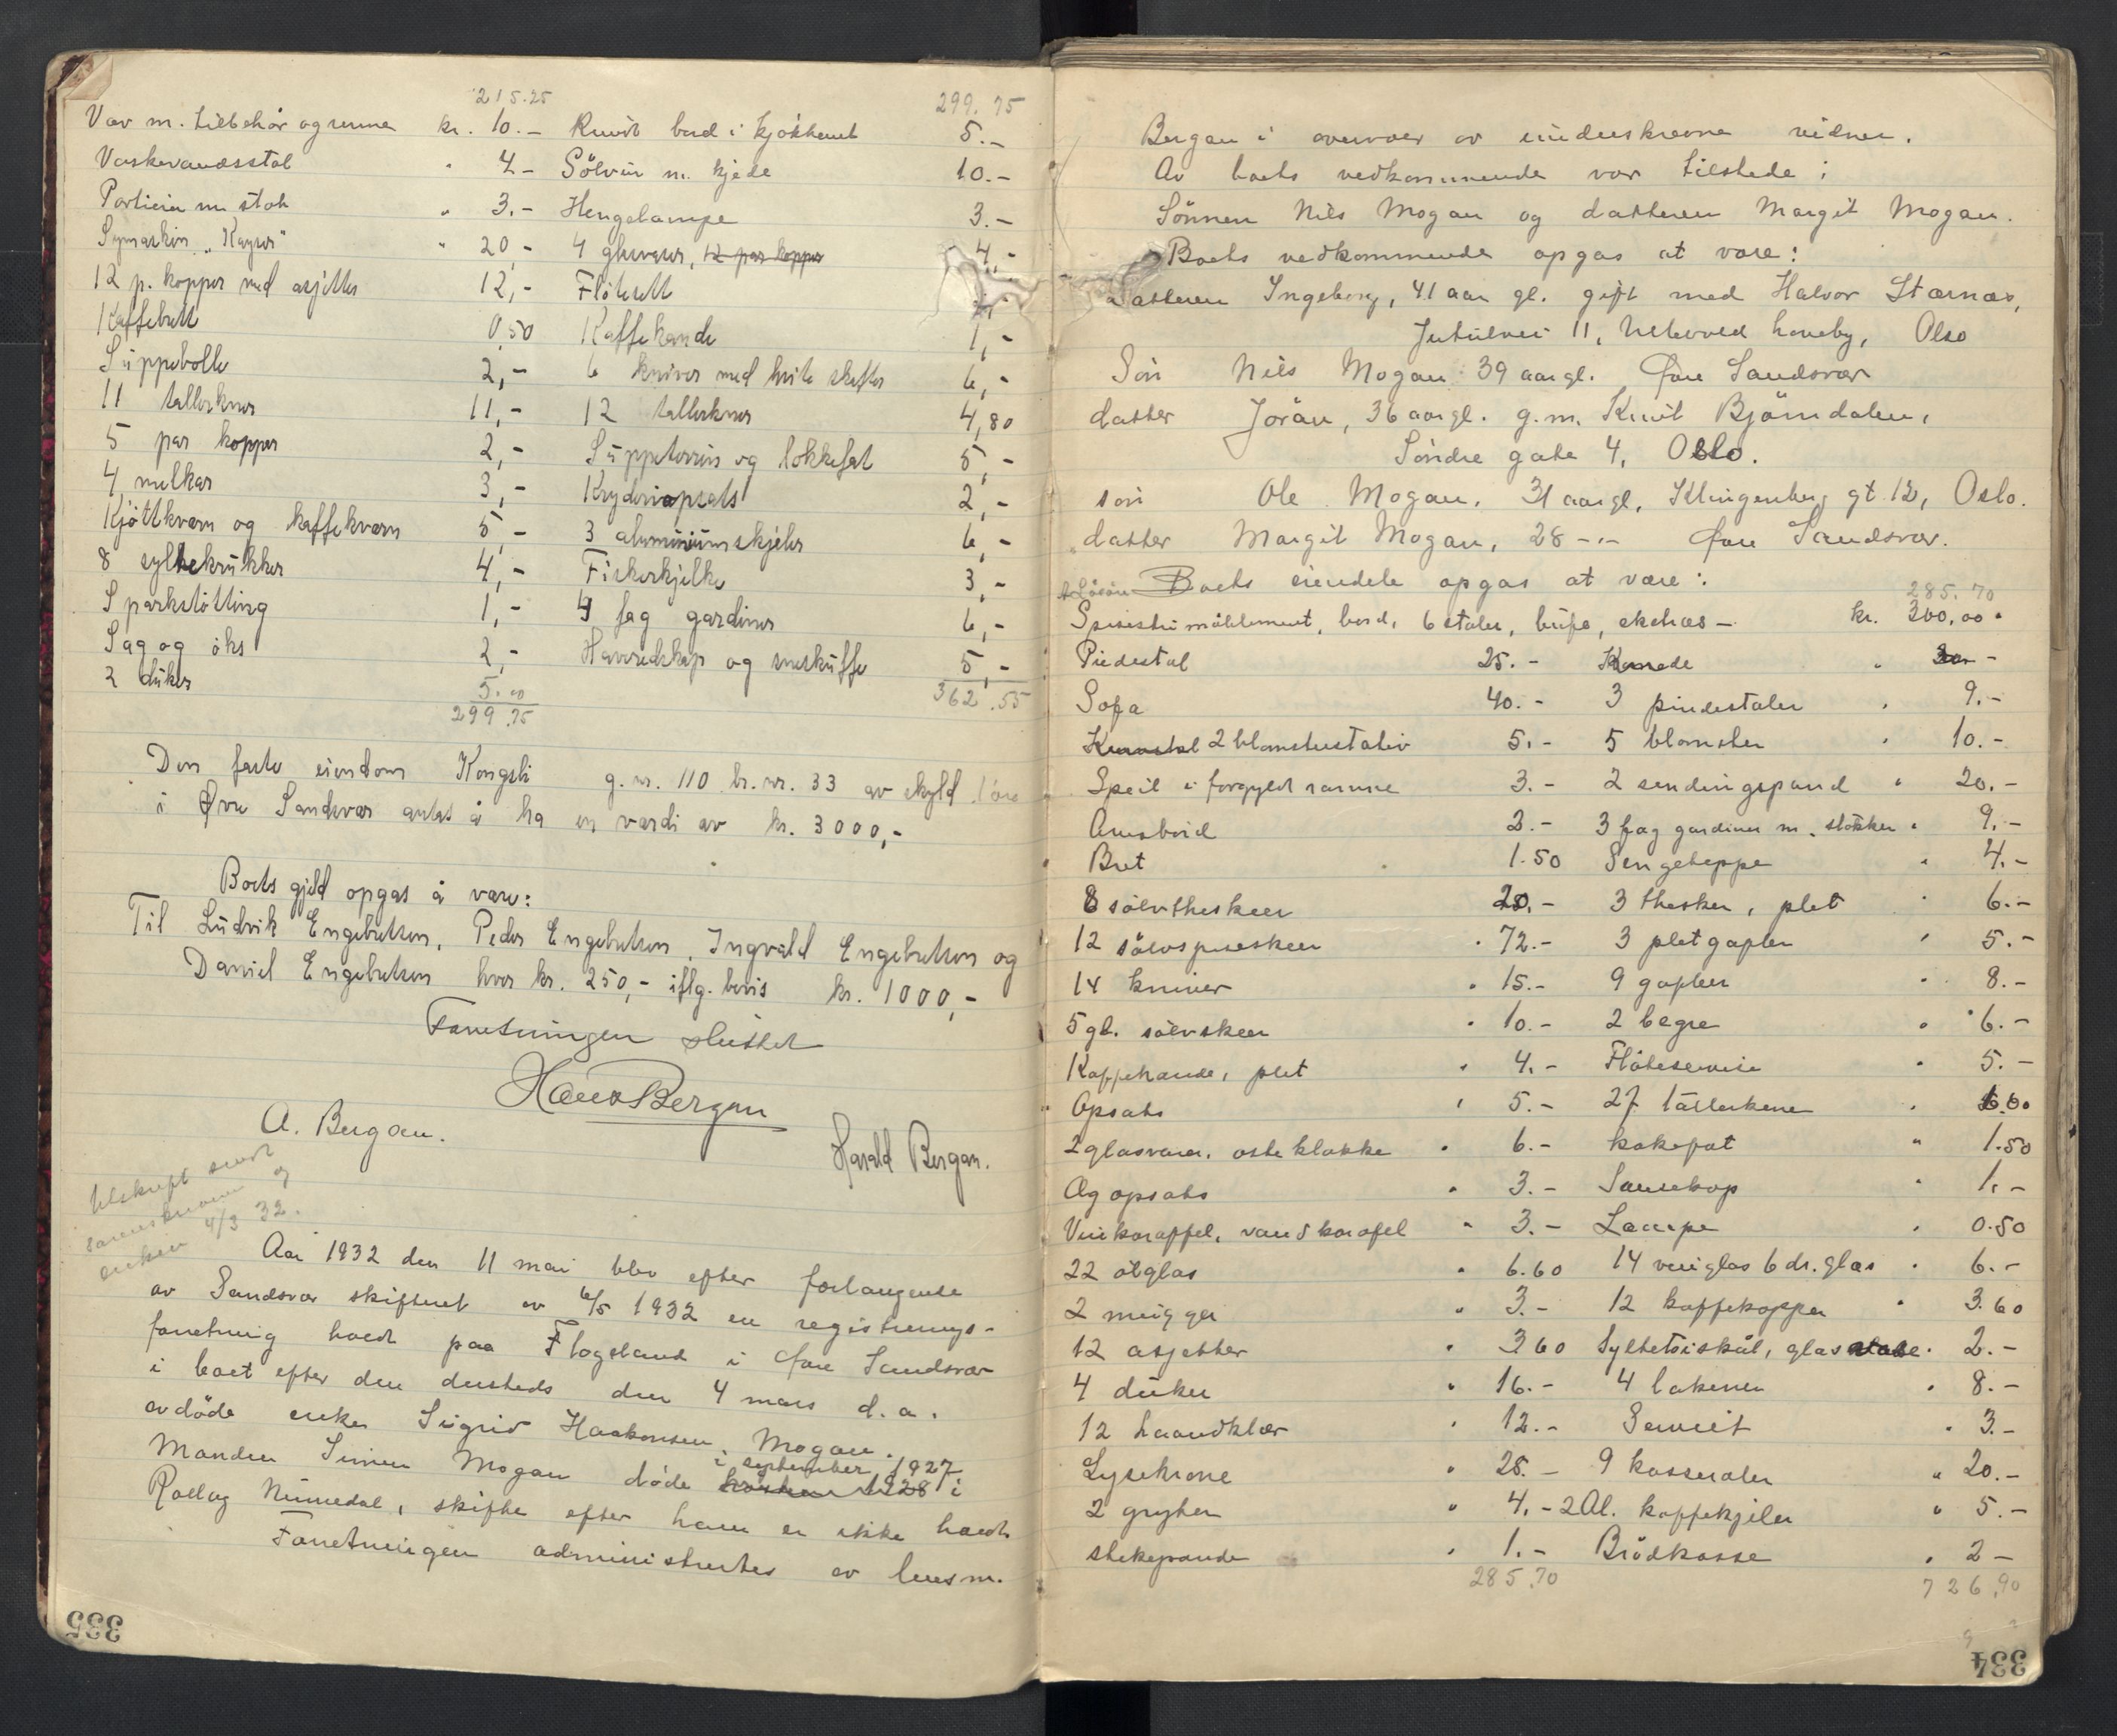 215.25 299.75
Væv m. tilbehør og renne kr. 10.- Rundt bord i kjøkkenet 5.-
Vaskevandsstol " 4- Sölvur m. kjede 10.-
Portierer m stok " 3.- Hengelampe 3.-
Symaskin "Kayser" " 20,- 4 glasvaser, 12 par kopper 4,-
12 p. kopper med asjetter 12,- Flötesett
Kaffebrett 0,50 Kaffekande 1,-
Suppebolle 2,- 6 kniver med hvite skefter 6,-
11 tallerkner 11,- 12 tallerkner 4,80
5 par kopper 2,- Suppeterrin og lokkefat 5,-
4 melkar 3,- Krydderiopsats 2,-
Kjöttkvern og kaffekvern 5,- 3 aluminiumskjeler 6,-
8 syltekrukker 4,- Fiskerkjelke 3,-
Sparkstötting 1,- 4 fag gardiner 6,-
Sag og öks 2,- Haveredskap og sneskuffe 5,-
2 duker 5.00 362.55
299.75
Den faste eiendom Kongsli g. nr. 110 br. nr. 33 av skyld 1 öre
i Øvre Sandsvær antas å ha en verdi av kr. 3000,-
Boets gjeld opgas å være:
Til Ludvik Engebretsen, Peder Engebretsen, Ingvald Engebretsen og
Daniel Engebretsen hver kr. 250,- iflg. bevis kr. 1000,-
Forretningen sluttet
Hans Bergan
A. Bergan. Harald Bergan.
Utskrift sendt
sorenskriveren og
enken 4/3 32.
Aar 1932 den 11 mai blev efter forlangende
av Sandsvær skifteret av 6/5 1932 en registrerings-
forretning holdt paa Flogeland i Øvre Sandsvær
i boet efter den dersteds den 4 mars d. a.
avdöde enke Sigrid Haakonsen Mogan.
i september 1927
Manden Simen Mogan döde hösten 1928 i
Rollag Numedal, skifte efter ham er ikke holdt
Forretningen administrertes av lensm.
335
Bergan i overvær av underskrevne vidner.
Av boets vedkommende var tilstede:
Sönnen Nils Mogan og datteren Margit Mogan.
Boets vedkommende opgas at være:
Datteren Ingeborg, 41 aar gl. gift med Halvor Stærnæs,
Jutulvei 11, Ullevold haveby, Olso
Sön Nils Mogan 39 aar gl. Øvre Sandsvær
datter Jorån, 36 aar gl. g. m. Knut Björndalen,
Söndre gate 4, Oslo.
sön Ole Mogan. 31 aar gl, Klingenberg gt. 12, Oslo.
datter Margit Mogan, 28 -"- Øvre Sandsvær.
A Lösöre Boets eiendele opgas at være: 285.70
Spisestumöblement, bord, 6 stoler, buffe, eketræs - kr. 300,00
Piedestal 25.- Komode " 30.-
Sofa 40.- 3 pindestoler " 9.-
Kurvstol 2 blomsterstativ 5.- 5 blomster " 10.-
Speil i forgyldt ramme 3.- 2 sendingspand " 20.-
Amsbord 2.- 3 fag gardiner m. stokker " 9.-
Bret 1.50 Sengeteppe " 4.-
8 sölvtheskeer 20.- 3 thesker, plet " 6.-
12 sölvspiseskeer " 72.- 3 pletgafler " 5.-
14 kniver " 15.- 9 gafler " 8.-
5 gl. sölvskeer " 10.- 2 begre " 6.-
Kaffekande, plet " 4.- Flöteservise " 5.-
Opsats " 5.- 27 tallerkener " 6.60
2 glasvaser, osteklokke " 6.- kakefat " 1.50
Æg opsats " 3.- Sausekop " 1.-
Vinkaraffel, vandkarafel " 3.- Lampe " 0.50
22 ölglas " 6.60 14 vinglas 6 dr. glas " 6.-
2 mugger " 3.- 12 kaffekopper " 3.60
12 asjetter " 3 60 Syltetöiskål, glas " 2.-
4 duker " 16.- 4 lakener " 8.-
12 haandklær " 12.- Serviet " 3.-
Lysekrone " 25.- 9 kasseroler " 20.-
2 gryter " 4.- 2 Al. kaffekjeler " 5.-
stekepande " 1.- Brödkasse " 2-
285.70 726.90
334